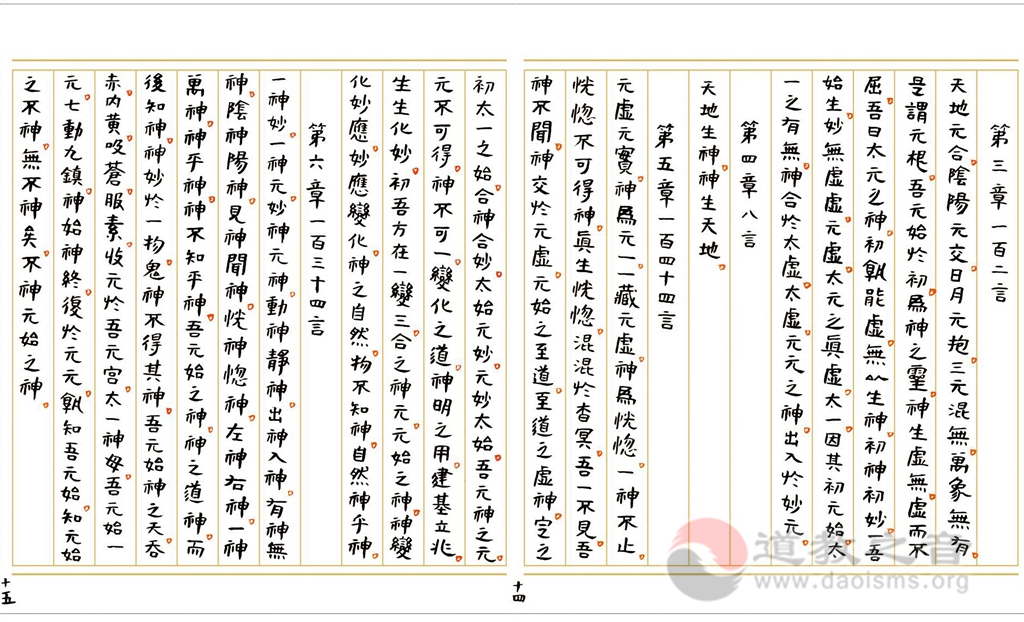 第三章一百二言
天地元合陰陽元交日月元抱三元混無萬象無有
是謂元根吾元始於初為神之靈神生虛無虛而不
屈吾曰太元之神初孰能虛無以生神初神初妙一吾
始生妙無虛虛元虛太元之真虛太一因其初元始太
一之有無神合於太虛太虛元元之神出入於妙元
第四章八言
天地生神神生天地
第五章一百四十四言
元虛元實神為元一一藏元虛神為恍惚一神不止
恍惚不可得神真生恍惚混混於杳冥吾一不見吾
神不聞神交於元虛元始之至道至道之虛神之
十四
初太一之始合神合妙太始元妙元妙太始吾元神之元
元不可得神不可一變化之道神明之用建基立兆
生生化妙初吾方在一變三合之神元元始之神神變
化妙應妙應變化神之自然物不知神自然神乎神
第六章一百三十四言
一神妙一神元妙神元神動神靜神出神入神有神無
神陰神陽神見神聞神恍神惚神左神右神一神
萬神神乎神神不知乎神吾元始之神神之道神而
後知神神妙於一物鬼神不得其神吾元始神之天吞
赤內黃吸蒼服素收元於吾元宮太一神母吾元始一
元七動九鎮神始神終復於元元孰知吾元始知元始
之不神無不神矣不神元始之神
十五
道教之音
www.daoisms.org